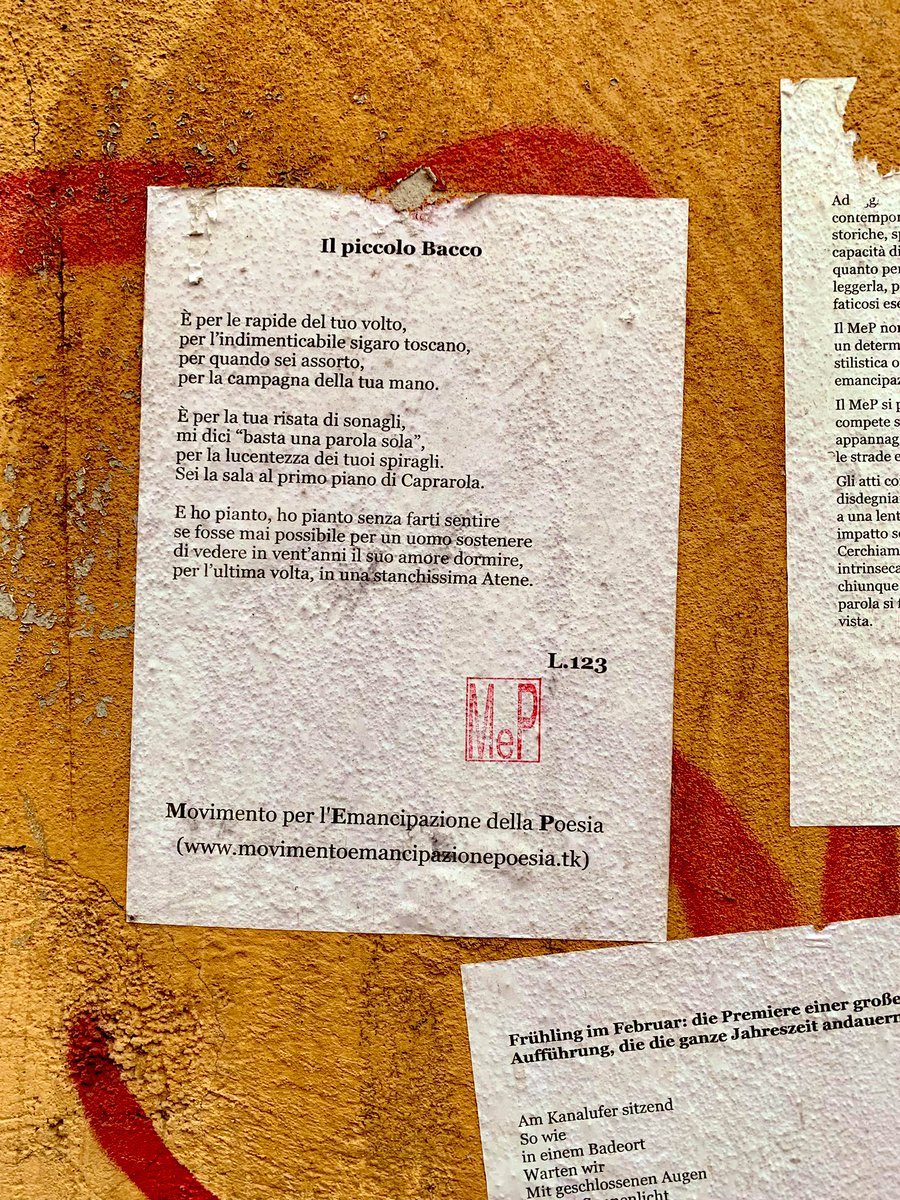 Il piccolo Bacco
È per le rapide del tuo volto,
per l’indimenticabile sigaro toscano,
per quando sei assorto,
per la campagna della tua mano.
È per la tua risata di sonagli,
mi dici “basta una parola sola”,
per la lucentezza dei tuoi spiragli.
Sei la sala al primo piano di Caprarola.
E ho pianto, ho pianto senza farti sentire
se fosse mai possibile per un uomo sostenere
di vedere in vent’anni il suo amore dormire,
per l’ultima volta, in una stanchissima Atene.
L.123
MeP
Movimento per l'Emancipazione della Poesia
(www.movimentoemancipazionepoesia.tk)
Ad
contempor
storiche, sp
capacità di
quanto per
leggerla, p
faticosi ese
Il MeP non
un determ
stilistica o
emancipaz
Il MeP si p
compete s
appannag
le strade e
Gli atti co
disdegnia
a una lent
impatto se
Cerchiam
intrinseca
chiunque
parola si f
vista.
Frühling im Februar: die Premiere einer große
Aufführung, die die ganze Jahreszeit andauern
Am Kanalufer sitzend
So wie
in einem Badeort
Warten wir
Mit geschlossenen Augen